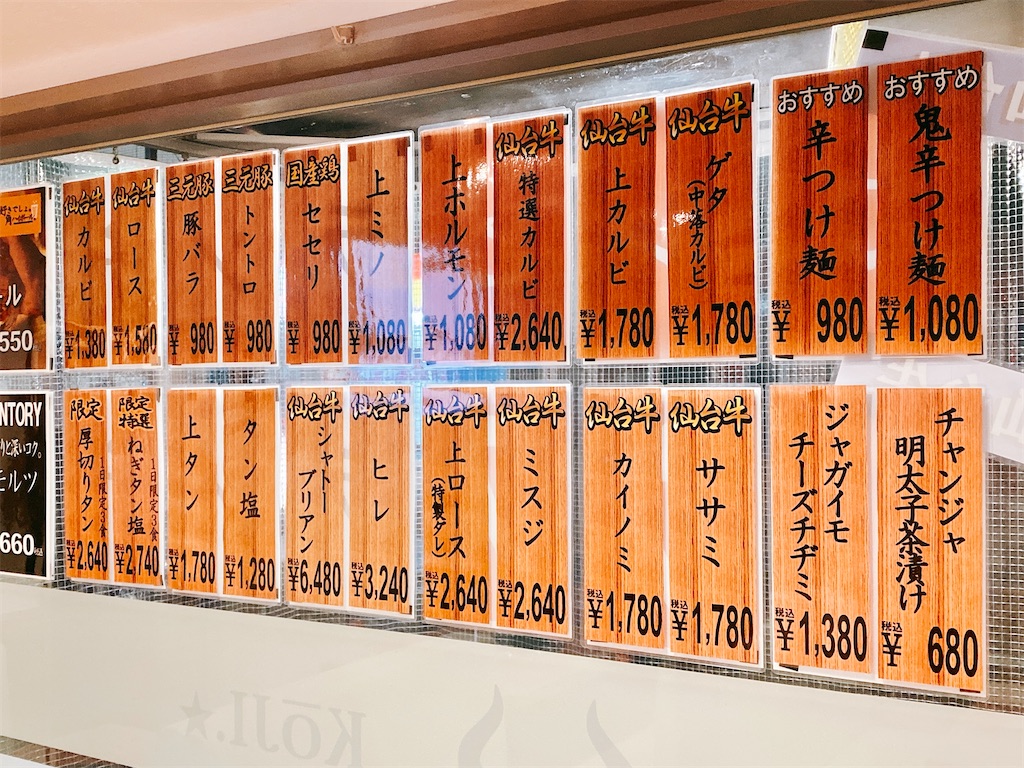 仙台牛
カルビ
¥1,380
仙台牛
ロース
¥1,580
三元豚
豚バラ
税込
¥980
三元豚
トントロ
税込
¥980
国産鶏
セセリ
税込
¥980
上ミノ
税込
¥1,080
上ホルモン
税込
¥1,080
仙台牛
特選カルビ
税込
¥2,640
仙台牛
上カルビ
税込
¥1,780
仙台牛
ゲタ
(中落カルビ)
税込
¥1,780
おすすめ
辛つけ麺
税込
¥980
おすすめ
鬼辛つけ麺
税込
¥1,080
限定
厚切りタン
1日限定3食
税込
¥2,640
限定
特選
ねぎタン塩
1日限定3食
税込
¥2,740
上タン
税込
¥1,780
タン塩
税込
¥1,280
仙台牛
シャトー
ブリアン
税込
¥6,480
仙台牛
ヒレ
税込
¥3,240
仙台牛
上ロース
(特製ダレ)
税込
¥2,640
仙台牛
ミスジ
税込
¥2,640
仙台牛
カイノミ
税込
¥1,780
仙台牛
ササミ
税込
¥1,780
ジャガイモ
チーズチヂミ
税込
¥1,380
チャンジャ
明太子茶漬け
税込
¥680
ール
550
NTORY
りと深いコク。
モルツ
660税込
KōJI.★